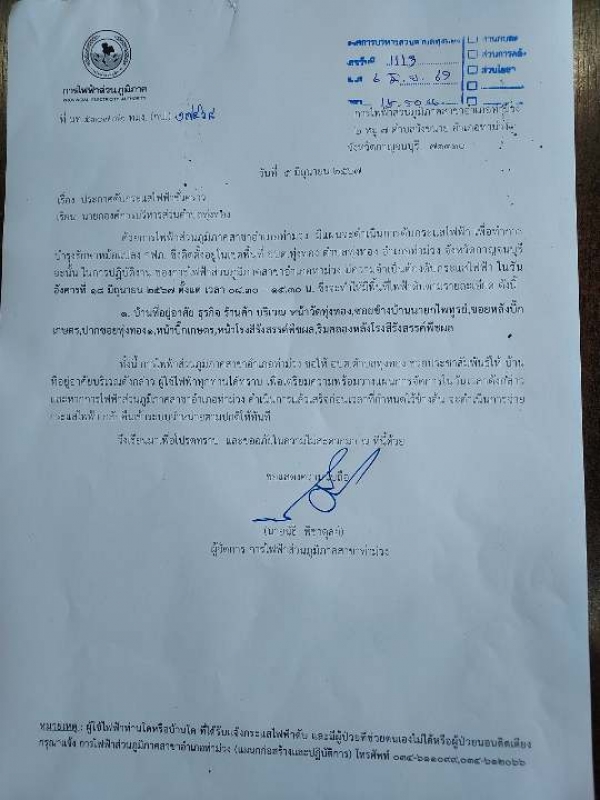 องค์การบริหารส่วนตำบลทุ่งทอง
เลขรับที่ 1113
6 มิ.ย. 67
ส่วนการคลัง
ส่วนโยธา
การไฟฟ้าส่วนภูมิภาค
PROVINCIAL ELECTRICITY AUTHORITY
ที่ มท
การไฟฟ้าส่วนภูมิภาคสาขาอำเภอท่าม่วง
หมู่ ๗ ตำบลวังขนาย อำเภอท่าม่วง
จังหวัดกาญจนบุรี
วันที่ ๕ มิถุนายน ๒๕๖๗
เรื่อง ประกาศดับกระแสไฟฟ้าชั่วคราว
เรียน นายกองค์การบริหารส่วนตำบลทุ่งทอง
ด้วยการไฟฟ้าส่วนภูมิภาคสาขาอำเภอท่าม่วง มีแผนจะดำเนินการดับกระแสไฟฟ้า เพื่อทำการ
บำรุงรักษาหม้อแปลง กฟภ. ซึ่งติดตั้งอยู่ในเขตพื้นที่ อบต.ทุ่งทอง ตำบลทุ่งทอง อำเภอท่าม่วง จังหวัดกาญจนบุรี
ฉะนั้น ในการปฏิบัติงาน ของการไฟฟ้าส่วนภูมิภาคสาขาอำเภอท่าม่วง มีความจำเป็นต้องดับกระแสไฟฟ้า ในวัน
อังคารที่ ๑๘ มิถุนายน ๒๕๖๗ ตั้งแต่ เวลา ๐๘.๓๐ – ๑๕.๓๐ น. ซึ่งจะทำให้มีพื้นที่ไฟฟ้าดับตามรายละเอียด ดังนี้
๑. บ้านที่อยู่อาศัย ธุรกิจ ร้านค้า บริเวณ หน้าวัดทุ่งทอง,ซอยข้างบ้านนายกไพฑูรย์,ซอยหลังบิ๊ก
เกษตร,ปากซอยทุ่งทอง๑,หน้าบิ๊กเกษตร,หน้าโรงสีรังสรรค์พืชผล,ริมคลองหลังโรงสีรังสรรค์พืชผล
ทั้งนี้ การไฟฟ้าส่วนภูมิภาคสาขาอำเภอท่าม่วง ขอให้ อบต.ตำบลทุ่งทอง ช่วยประชาสัมพันธ์ให้ บ้าน
ที่อยู่อาศัยบริเวณดังกล่าว ผู้ใช้ไฟฟ้าทุกท่านได้ทราบ เพื่อเตรียมความพร้อมวางแผนการจัดการในวันเวลาดังกล่าว
และหากการไฟฟ้าส่วนภูมิภาคสาขาอำเภอท่าม่วง ดำเนินการแล้วเสร็จก่อนเวลาที่กำหนดไว้ข้างต้น จะดำเนินการจ่าย
กระแสไฟฟ้ากลับคืนเข้าระบบจำหน่ายตามปกติให้ทันที
จึงเรียนมาเพื่อโปรดทราบ และขออภัยในความไม่สะดวกมา ณ ที่นี้ด้วย
ขอแสดงความนับถือ
ผู้จัดการ การไฟฟ้าส่วนภูมิภาคสาขาท่าม่วง
หมายเหตุ : ผู้ใช้ไฟฟ้าท่านใดหรือบ้านใด ที่ได้รับแจ้งกระแสไฟฟ้าดับ และมีผู้ป่วยที่ช่วยตนเองไม่ได้หรือผู้ป่วยนอนติดเตียง
กรุณาแจ้ง การไฟฟ้าส่วนภูมิภาคสาขาอำเภอท่าม่วง (แผนกก่อสร้างและปฏิบัติการ) โทรศัพท์ ๐๓๔-๖๑๑๐๙๙,๐๓๔-๖๑๒๐๖๖